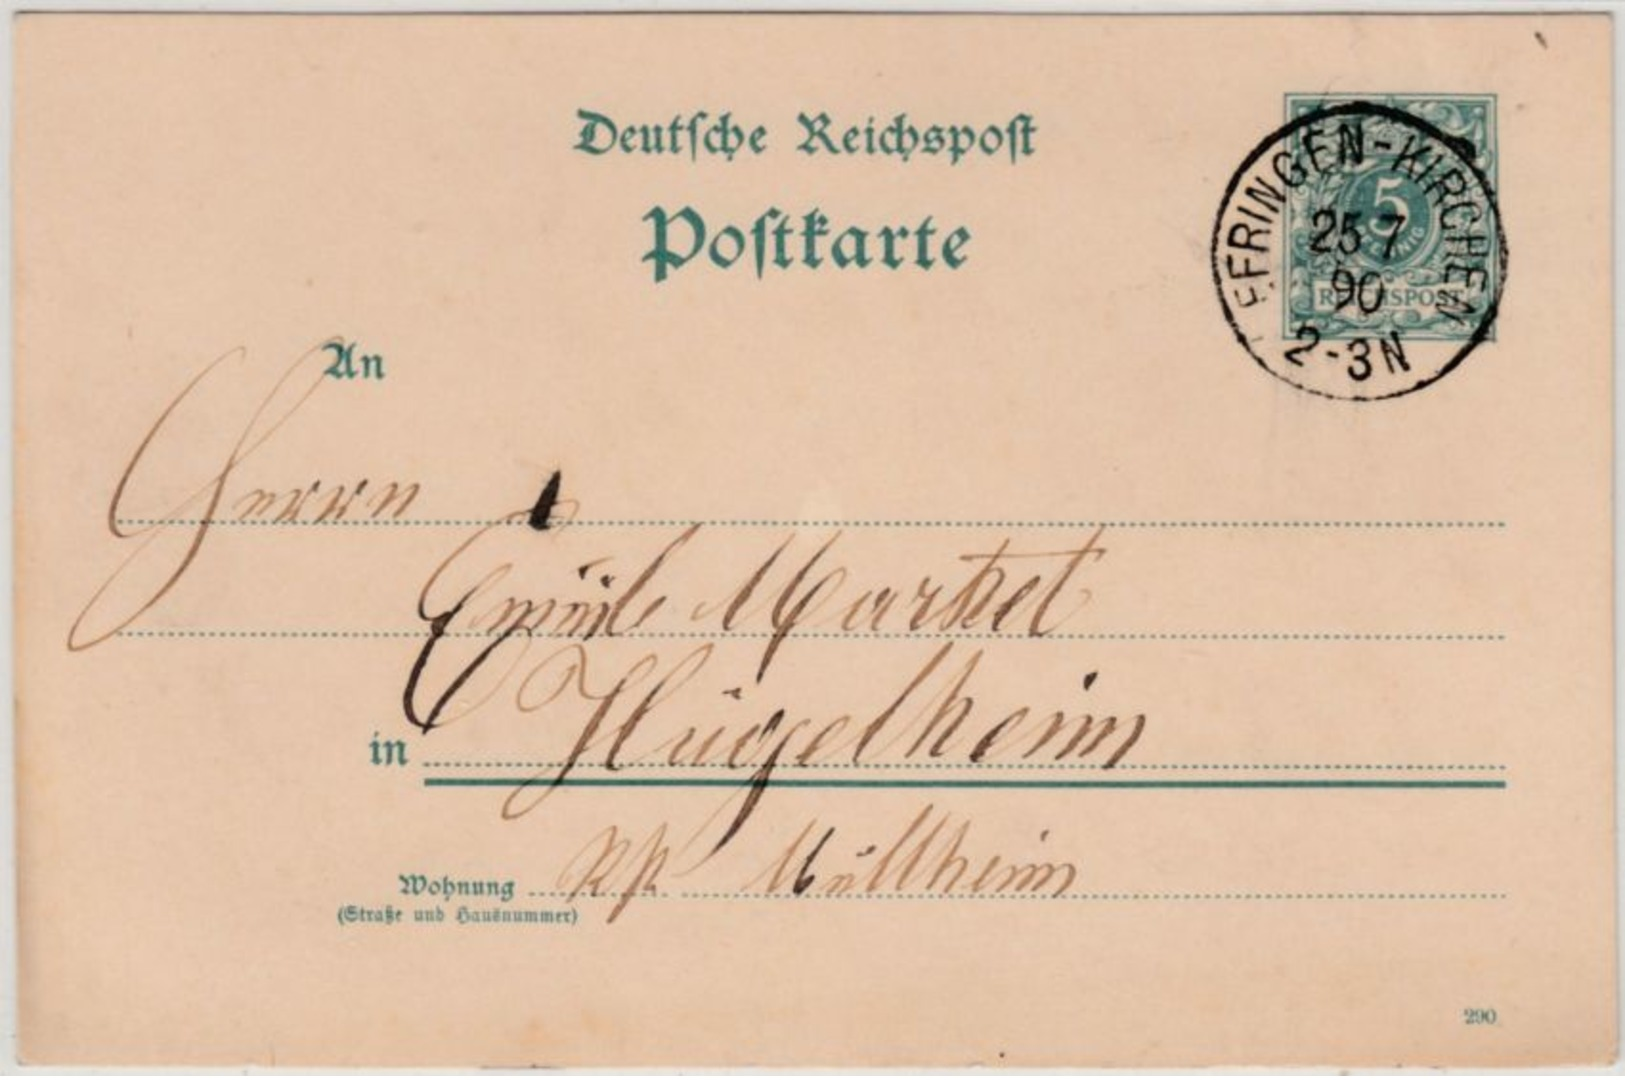 Deutsche Reichspost
Postkarte
EFRINGEN-KIRCHEN
25 7
90
2-3N
5
PFENNIG
REICHSPOST
An
Herrn
Emil Markt
in Hügelheim
Wohnung
(Straße und Hausnummer)
Müllheim
290